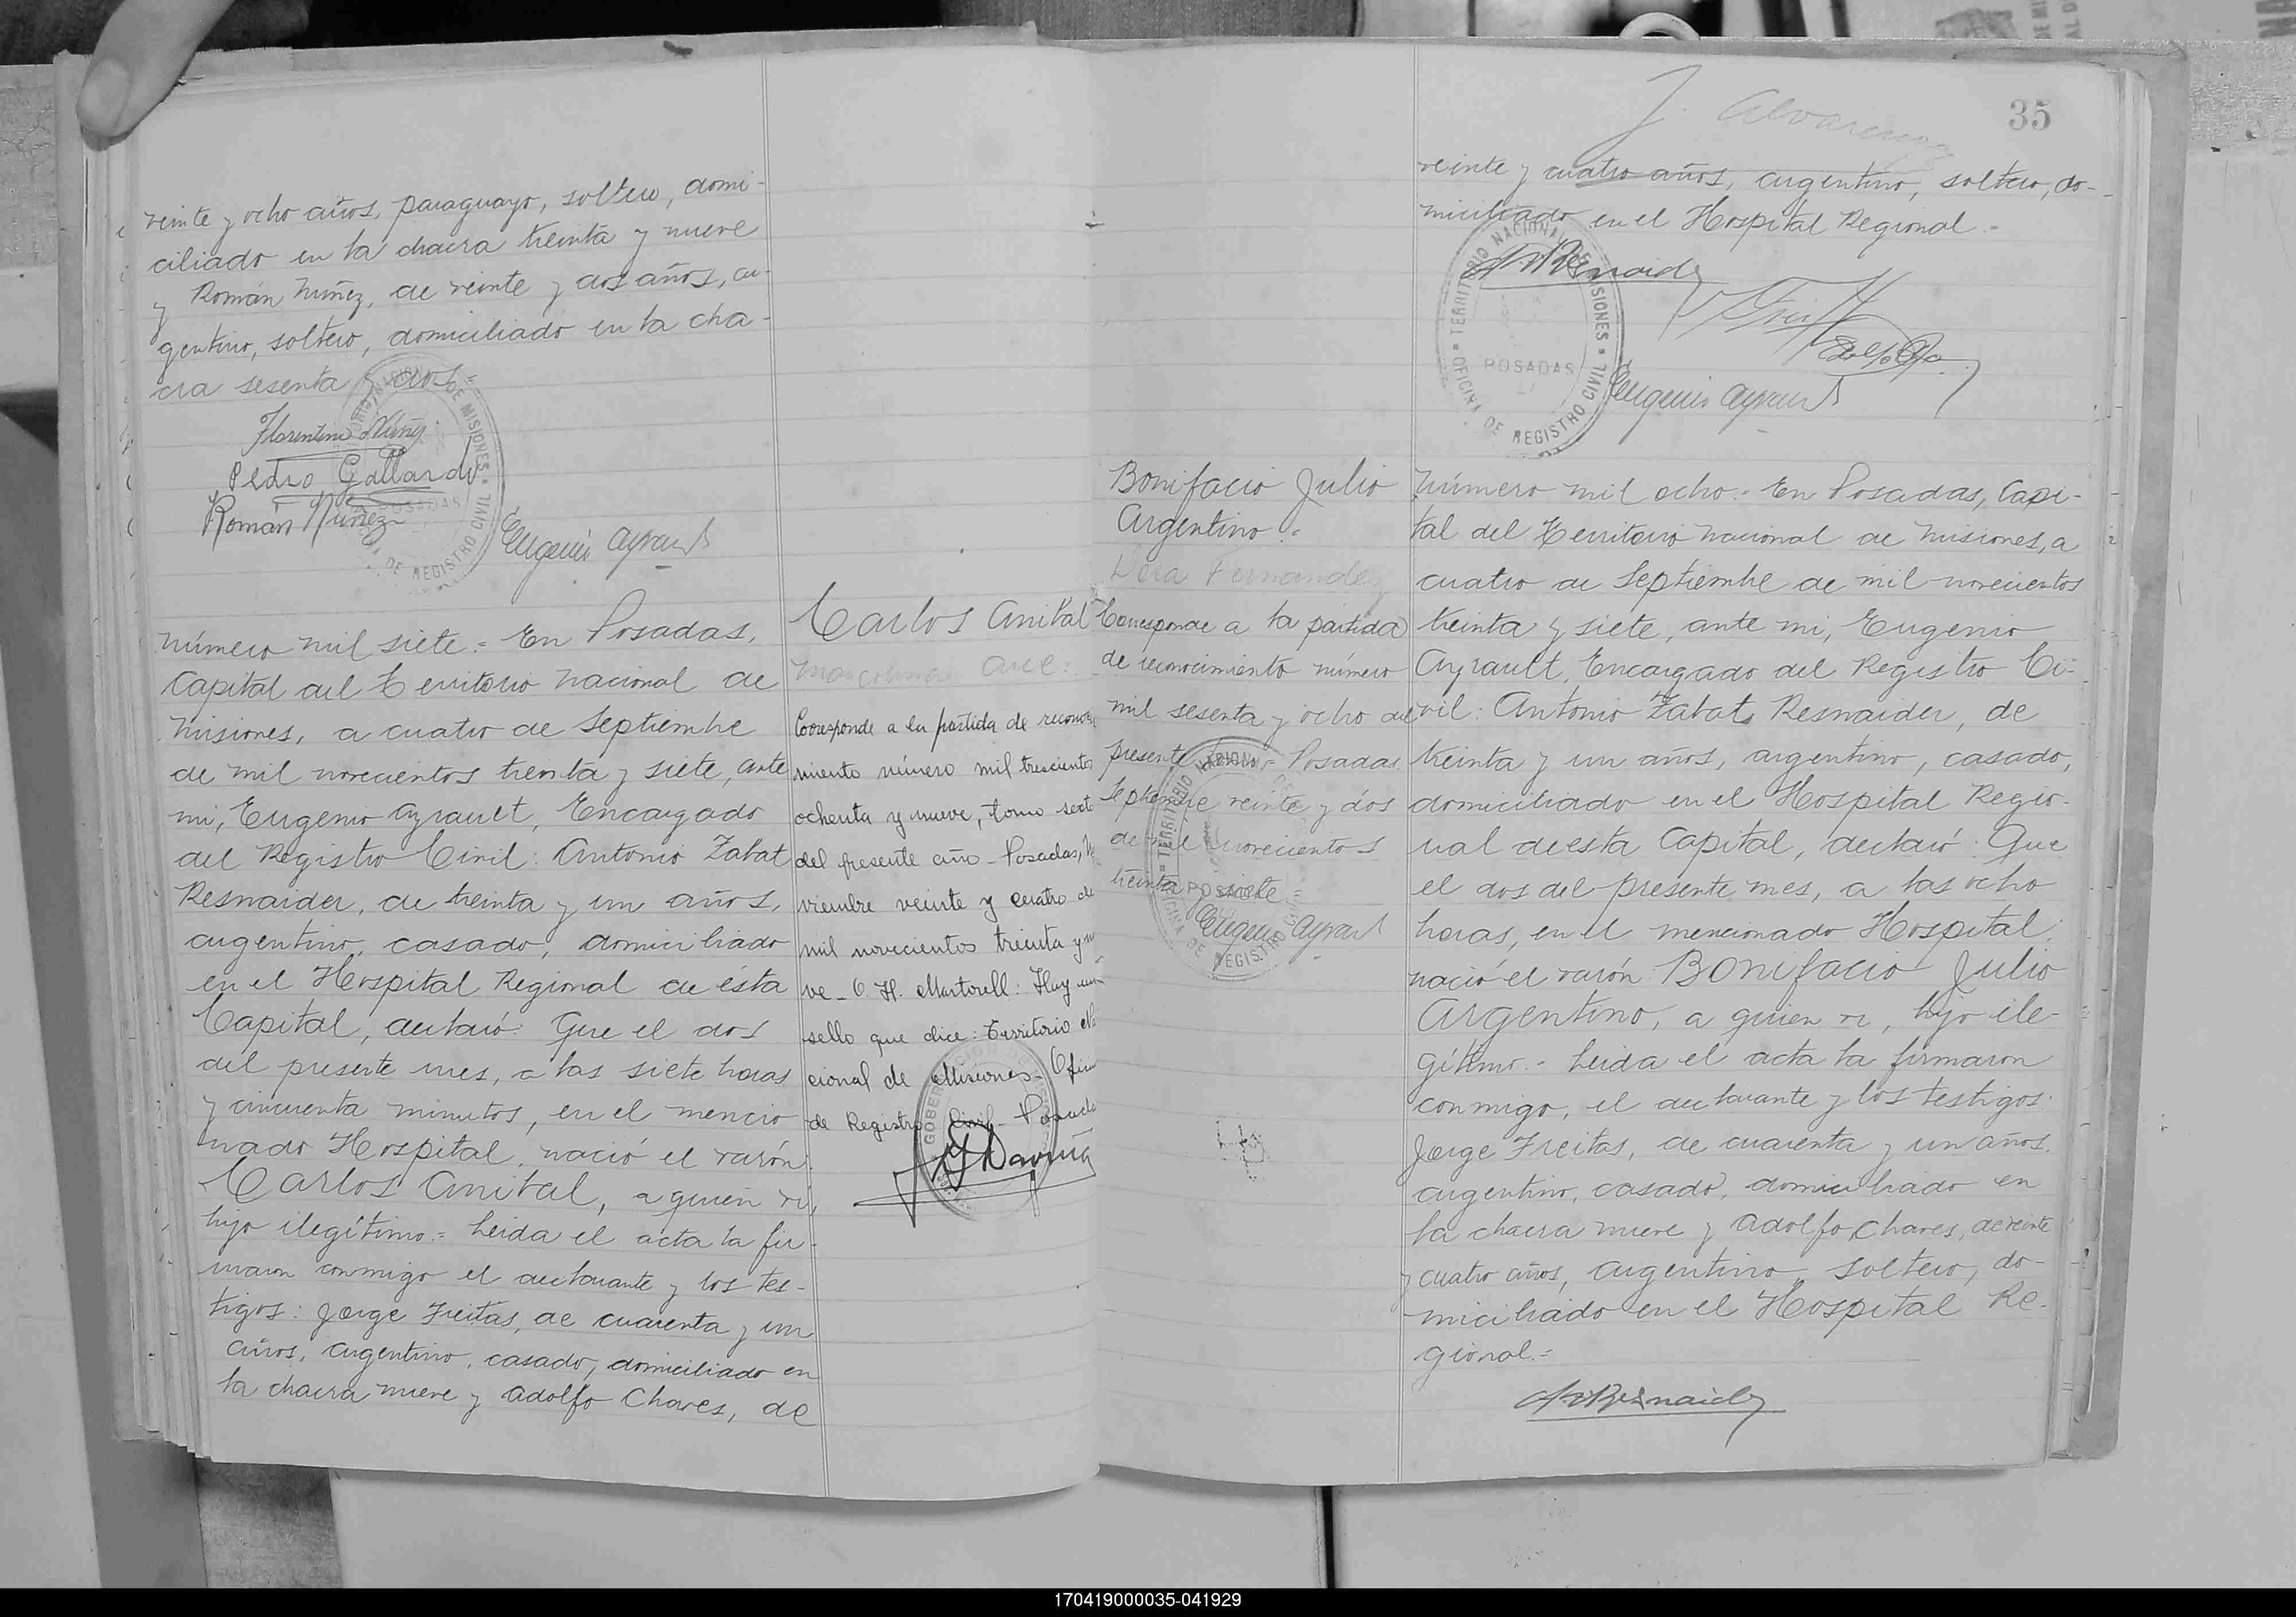 veinte y ocho años, paraguayo, soltero, domi-
ciliado en la chacra treinta y nueve
y Román Nuñez, de veinte y dos años, ar-
gentino, soltero, domiciliado en la cha-
cra sesenta y dos.=
Florentino Nuñez
Pedro Gallardo
Román Nuñez
Eugenio Ayrault
número mil siete.= En Posadas,
Capital del Territorio Nacional de
Misiones, a cuatro de Septiembre
de mil novecientos treinta y siete, ante
mi, Eugenio Ayrault, Encargado
del Registro Civil: Antonio Zabat
Resnaider, de treinta y un años,
argentino, casado, domiciliado
en el Hospital Regional de ésta
Capital, declaró: Que el dos
del presente mes, a las siete horas
y cincuenta minutos, en el mencio
nado Hospital, nació el varón:
Carlos Anibal, a quien ví,
hijo ilegítimo.= Leida el acta la fir-
maron conmigo el declarante y los tes-
tigos: Jorge Freitas, de cuarenta y un
años, argentino, casado, domiciliado en
la chacra nueve y Adolfo Chaves, de
Carlos Anibal
Corresponde a la partida de reconoci
miento número mil trescientos
ochenta y nueve, tomo sexto
del presente año - Posadas, No
viembre veinte y cuatro de
mil novecientos treinta y nue
ve - O. H. Martorell: Hay un
sello que dice: Territorio Na
cional de Misiones - Oficina
de Registro Civil - Posadas
J. Alvarenga
35
veinte y cuatro años, argentino, soltero, do-
miciliado en el Hospital Regional.=
TERRITORIO NACIONAL DE MISIONES
POSADAS
OFICINA DE REGISTRO CIVIL
Eugenio Ayrault
Bonifacio Julio
Argentino.=
Fernandez
Corresponde a la partida
de reconocimiento número
mil sesenta y ocho del
presente tomo = Posadas
Septiembre veinte y dos
de mil novecientos
treinta y siete =
Eugenio Ayrault
número mil ocho.= En Posadas, Capi-
tal del Territorio Nacional de Misiones, a
cuatro de Septiembre de mil novecientos
treinta y siete, ante mi, Eugenio
Ayrault, Encargado del Registro Ci-
vil: Antonio Zabat Resnaider, de
treinta y un años, argentino, casado,
domiciliado en el Hospital Regio-
nal de esta Capital, declaró: Que
el dos del presente mes, a las ocho
horas, en el mencionado Hospital,
nació el varón: Bonifacio Julio
Argentino, a quien ví, hijo ile-
gítimo.- Leida el acta la firmaron
conmigo, el declarante y los testigos:
Jorge Freitas, de cuarenta y un años,
argentino, casado, domiciliado en
la chacra nueve y Adolfo Chaves, de veinte
y cuatro años, argentino, soltero, do-
miciliado en el Hospital Re-
gional.=
170419000035-041929